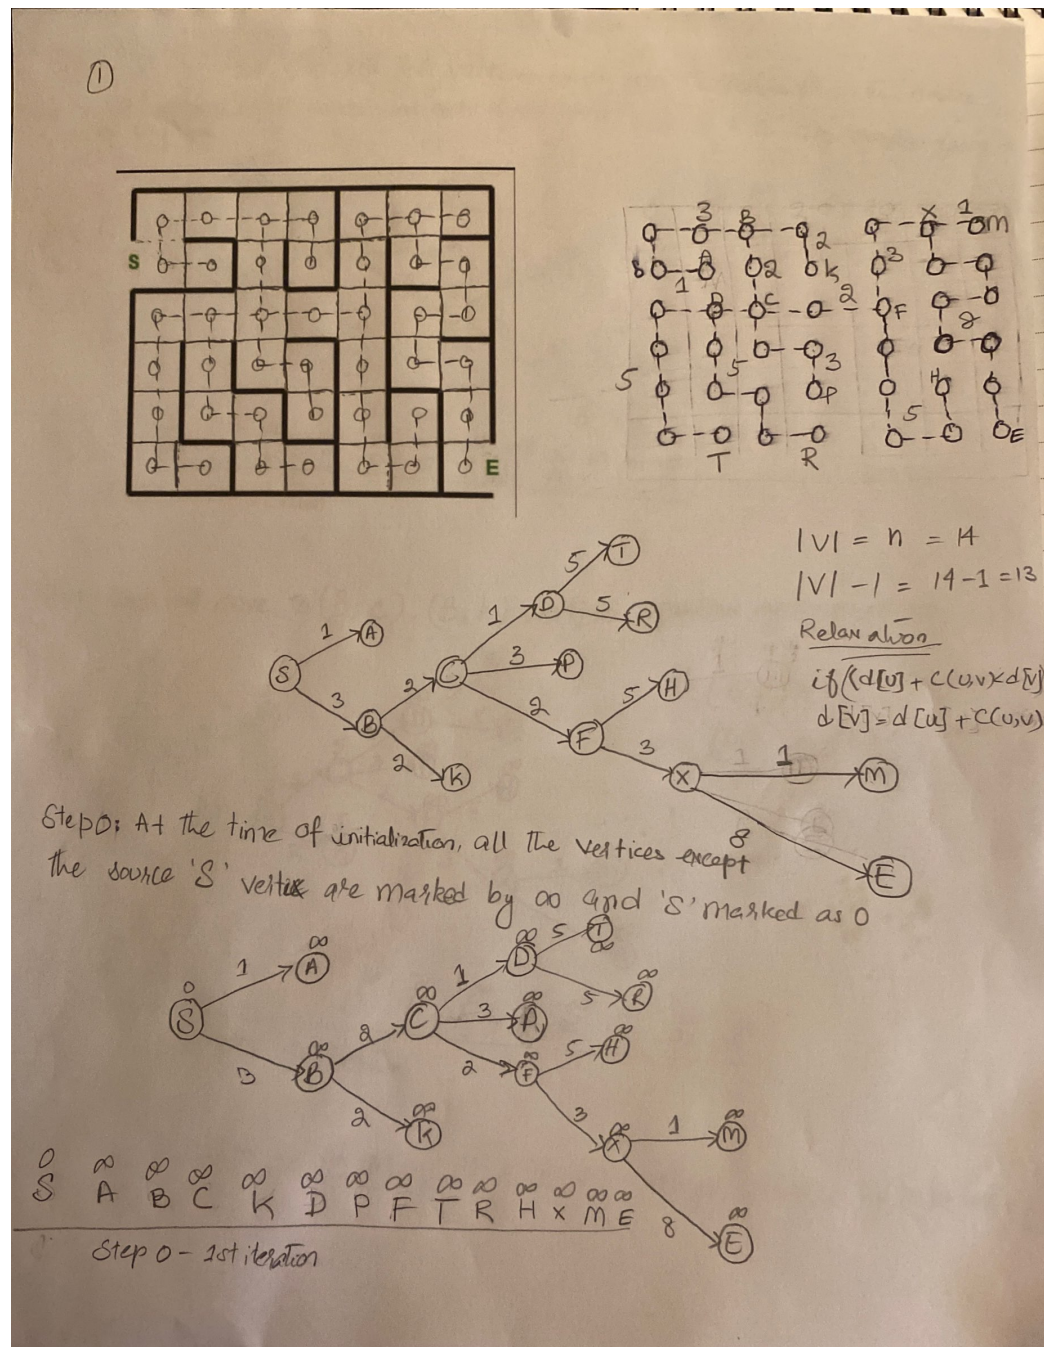 ①
S
E
3 B X 1 M
2
S A 2 K 3
1
D C 2 F
2
5 5 3
P H
5
T R E
|V| = n = 14
|V| - 1 = 14 - 1 = 13
Relaxation
if((d[u] + C(u,v) < d[v]
d[v] = d[u] + C(u,v)
5 T
1 D 5 R
1 A
S C 3 P
3 2 2 5 H
B F
2 K 3 X 1 M
8
E
Step0: At the time of initialization, all the vertices except
the source 'S' vertix are marked by ∞ and 'S' marked as 0
∞ 5 T ∞
∞ A D
1 1 5 ∞ R
0 S ∞ C 3 ∞ P
2 5 ∞ H
3 ∞ B 2 ∞ F
2 ∞ K 3 ∞ X 1 ∞ M
8 ∞ E
0 ∞ ∞ ∞ ∞ ∞ ∞ ∞ ∞ ∞ ∞ ∞ ∞ ∞
S A B C K D P F T R H X M E
Step 0 - 1st iteration